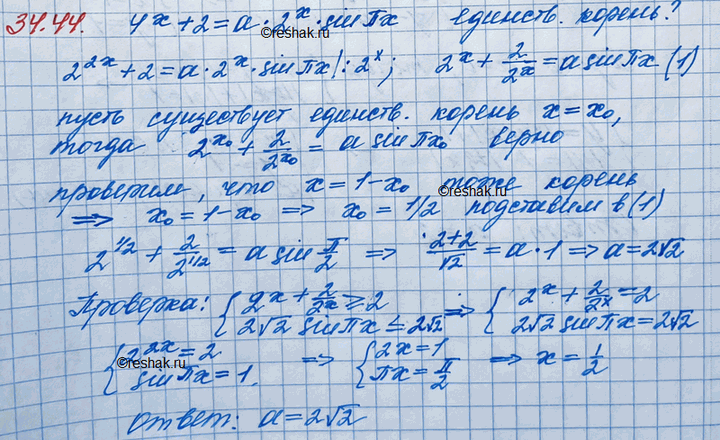 34.44. 4^x + 2 = a · 2^x · sin πx единств. корень?
©reshak.ru
2^{2x} + 2 = a · 2^x · sin πx |: 2^x; 2^x + 2/2^x = a sin πx (1)
пусть существует единств. корень x = x₀,
тогда 2^{x₀} + 2/2^{x₀} = a sin πx₀ верно
проверим, что x = 1 - x₀ тоже корень
©reshak.ru
⟹ x₀ = 1 - x₀ ⟹ x₀ = 1/2 подставим в (1)
2^{1/2} + 2/2^{1/2} = a sin π/2 ⟹ (2+2)/√2 = a · 1 ⟹ a = 2√2
Проверка: { 2^x + 2/2^x ≥ 2 ⟹ { 2^x + 2/2^x = 2
2√2 sin πx ≤ 2√2 2√2 sin πx = 2√2
{ 2^{2x} = 2 ⟹ { 2x = 1 ⟹ x = 1/2
©reshak.ru
sin πx = 1. πx = π/2
ответ: a = 2√2